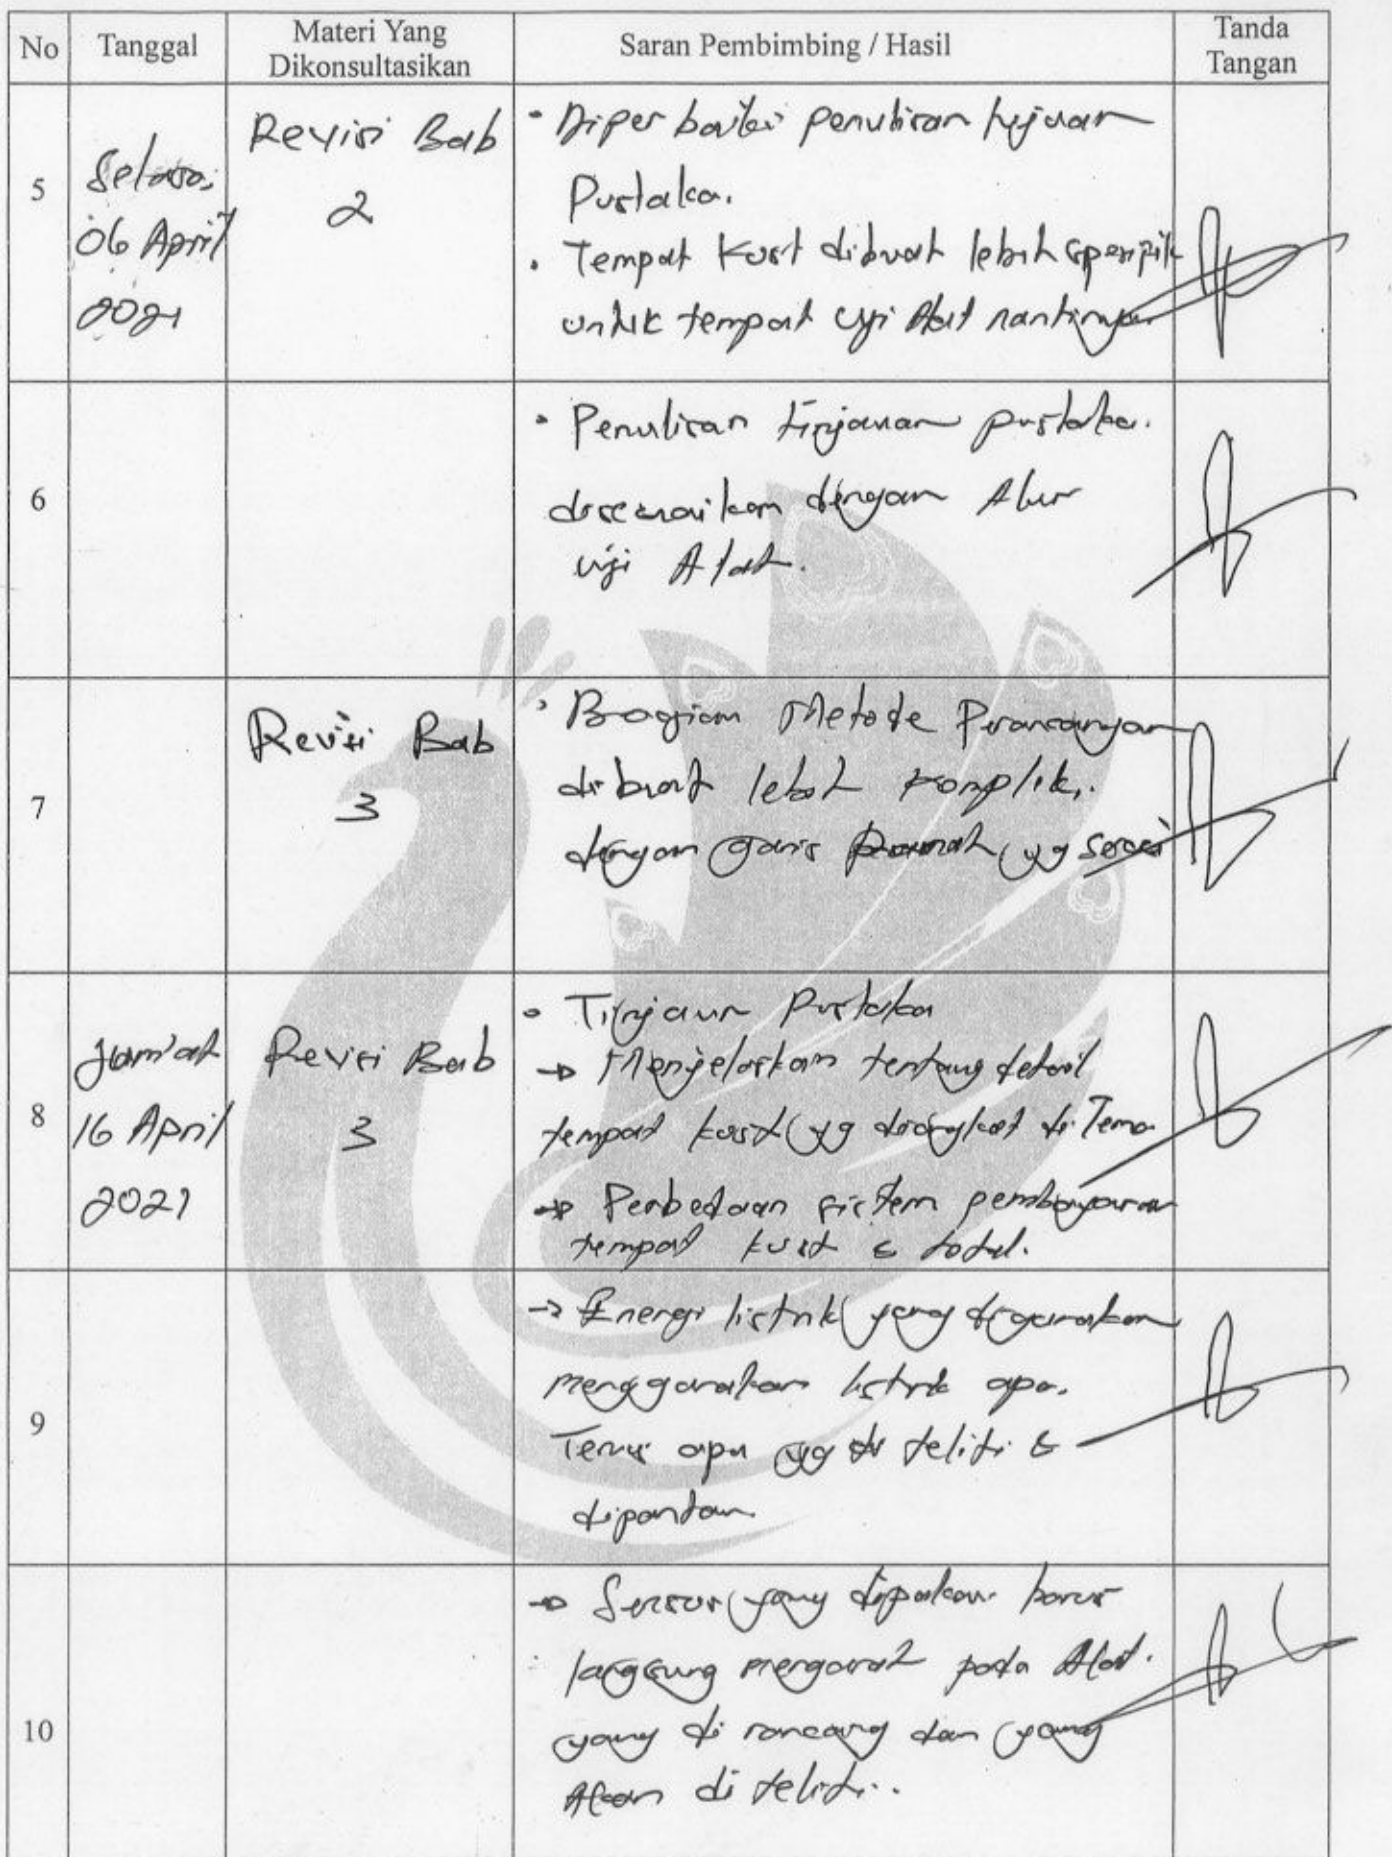 No
Tanggal
Materi Yang
Dikonsultasikan
Saran Pembimbing / Hasil
Tanda
Tangan
5
Selasa,
06 April
2021
Revisi Bab
2
• Diperbaiki penulisan tujuan
Pustaka.
• Tempat Kost dibuat lebih spesifik
untuk tempat uji Alat nantinya
6
• Penulisan tinjauan pustaka.
disesuaikan dengan Alur
uji Alat.
7
Revisi Bab
3
• Bagian Metode Perancangan
dibuat lebih komplik,.
dengan garis yg sesuai
8
Jum'at
16 April
2021
Revisi Bab
3
• Tinjaun Pustaka
→ Menjelaskan tentang detail
tempat kost yg diangkat di Tema
→ Perbedaan sistem pembayaran
tempat kost &
9
→ Energi listrik yang digunakan
menggunakan listrik apa.
Terus apa yg di teliti &
dipantau
10
→ Sensor yang dipakai harus
langsung mengarah pada Alat.
yang di rancang dan yang
Akan di teliti..